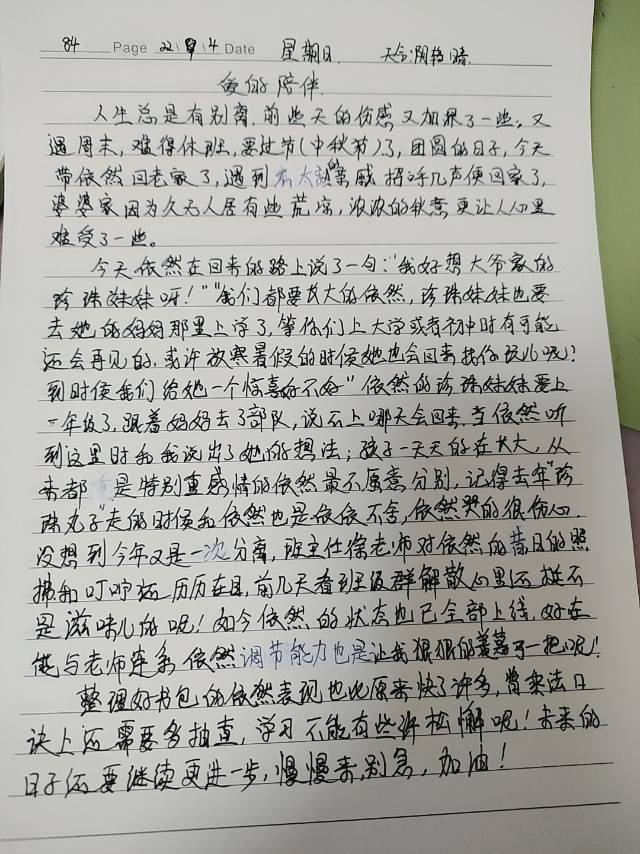 84 Page 22 9 4 Date 星期日 天气:阴转晴
爱的陪伴
人生总是有别离,前些天的伤感又加深了一些,又
遇周末,难得休班,要过节(中秋节)了,团圆的日子,今天
带依然回老家了,遇到 亲戚招呼几声便回家了,
婆婆家因为久无人居有些荒凉,浓浓的秋意更让人心里
难受了一些。
今天依然在回来的路上说了一句:“我好想大爷家的
珍珠妹妹呀!”“我们都要长大的依然,珍珠妹妹也要
去她的妈妈那里上学了,等你们上大学或者初中时有可能
还会再见的,或许放寒暑假的时候她也会回来找你玩儿呢?
到时侯我们给她一个惊喜好不好”依然的珍珠妹妹要上
一年级了,跟着妈妈去了部队,说不上哪天会回来,当依然听
到这里时和我说出了她的想法;孩子一天天的在长大,从
来都 是特别重感情的依然最不愿意分别,记得去年“珍
珠丸子”走的时侯和依然也是依依不舍,依然哭的很伤心.
没想到今年又是一次分离,班主任徐老师对依然的昔日的照
拂和叮咛还历历在目,前几天看到班级群解散心里还挺不
是滋味儿的呢!如今依然的状态也已全部上线,好在
能与老师联系,依然调节能力也是让我狠狠的羡慕了一把呢!
整理好书包的依然表现也比原来快了许多,背乘法口
诀上还需要多抽查,学习不能有些许松懈呢!未来的
日子还要继续更进一步,慢慢来,别急,加油!